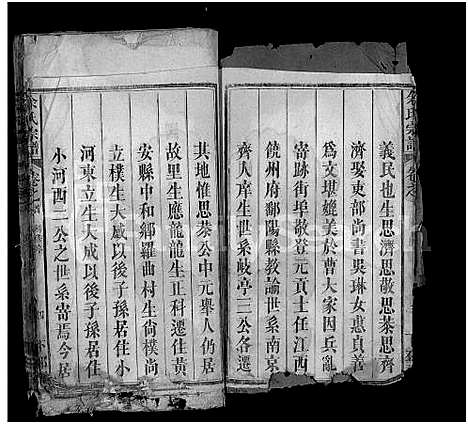 義民也生思濟思敬思恭思齊
濟娶吏部尚書吳琳女惠貞善
為文堪媲美於曹大家因兵亂
寄跡街埠敬登元貢士任江西
饒州府鄱陽縣教諭世系南京
齊人庠生世系岐亭三公各遷
其地惟思恭公中元舉人仍居
故里生應龍龍生正科遷住黃
安縣中和鄉羅曲村生尙樸尙
立樸生大威以後子孫居住小
河東立生大成以後子孫居住
小河西二公之世系寄焉今居
氏宗譜